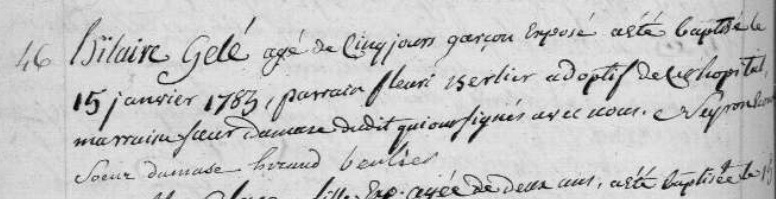 46 hilaire Gelé agé de Cinq jours garçon Exposé a été baptisé le
15 janvier 1783, parrain fleuri adoptif de cet hopital,
marraine sœur damase dudit qui ont signés avec nous.
Soeur damase
fille Exp. agée de deux ans, a été baptisée le 15